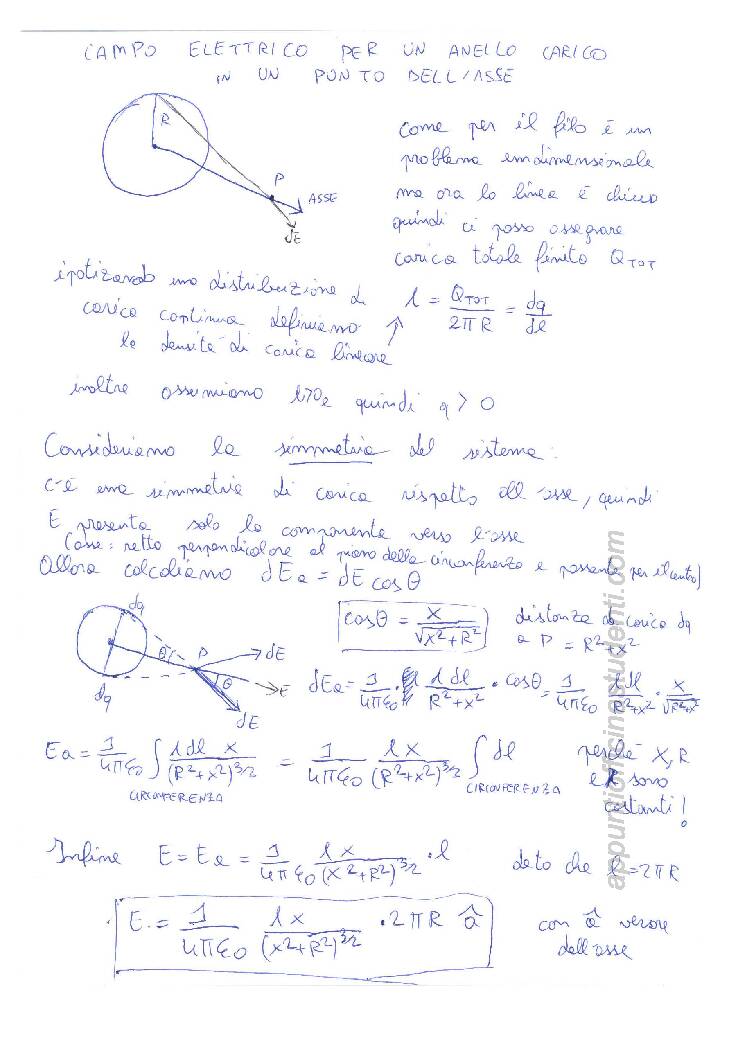 CAMPO ELETTRICO PER UN ANELLO CARICO
IN UN PUNTO DELL'ASSE
R
P
ASSE
dE
come per il filo è un
problema unidimensionale
ma ora la linea è chiusa
quindi ci posso assegnare
carica totale finita Q_TOT
ipotizzando una distribuzione di
carica continua definiamo
la densità di carica lineare
λ = Q_TOT / 2πR = dq / dl
inoltre assumiamo λ>0 e quindi q > 0
Consideriamo la simmetria del sistema:
c'è una simmetria di carica rispetto all'asse, quindi
E presenta solo la componente verso l'asse
(asse: retta perpendicolare al piano della circonferenza e passante per il centro)
Allora calcoliamo dEa = dE cosθ
dq
dq
θ
P
dE
θ
E
dE
cosθ = x / √(x²+R²)
distanza di carica dq
a P = R²+x²
dEa = 1/4πε0 · λ dl / R²+x² · cosθ = 1/4πε0 λdl / R²+x² · x / √R²+x²
Ea = 1/4πε0 ∫ λ dl x / (R²+x²)^3/2 = 1/4πε0 λx / (R²+x²)^3/2 ∫ dl
CIRCONFERENZA
CIRCONFERENZA
perché x, R
e λ sono
costanti!
Infine E = Ea = 1/4πε0 λx / (x²+R²)^3/2 · l dato che l = 2πR
E = 1/4πε0 λx / (x²+R²)^3/2 · 2πR â
con â versore
dell'asse
appuntiofficinastudenti.com